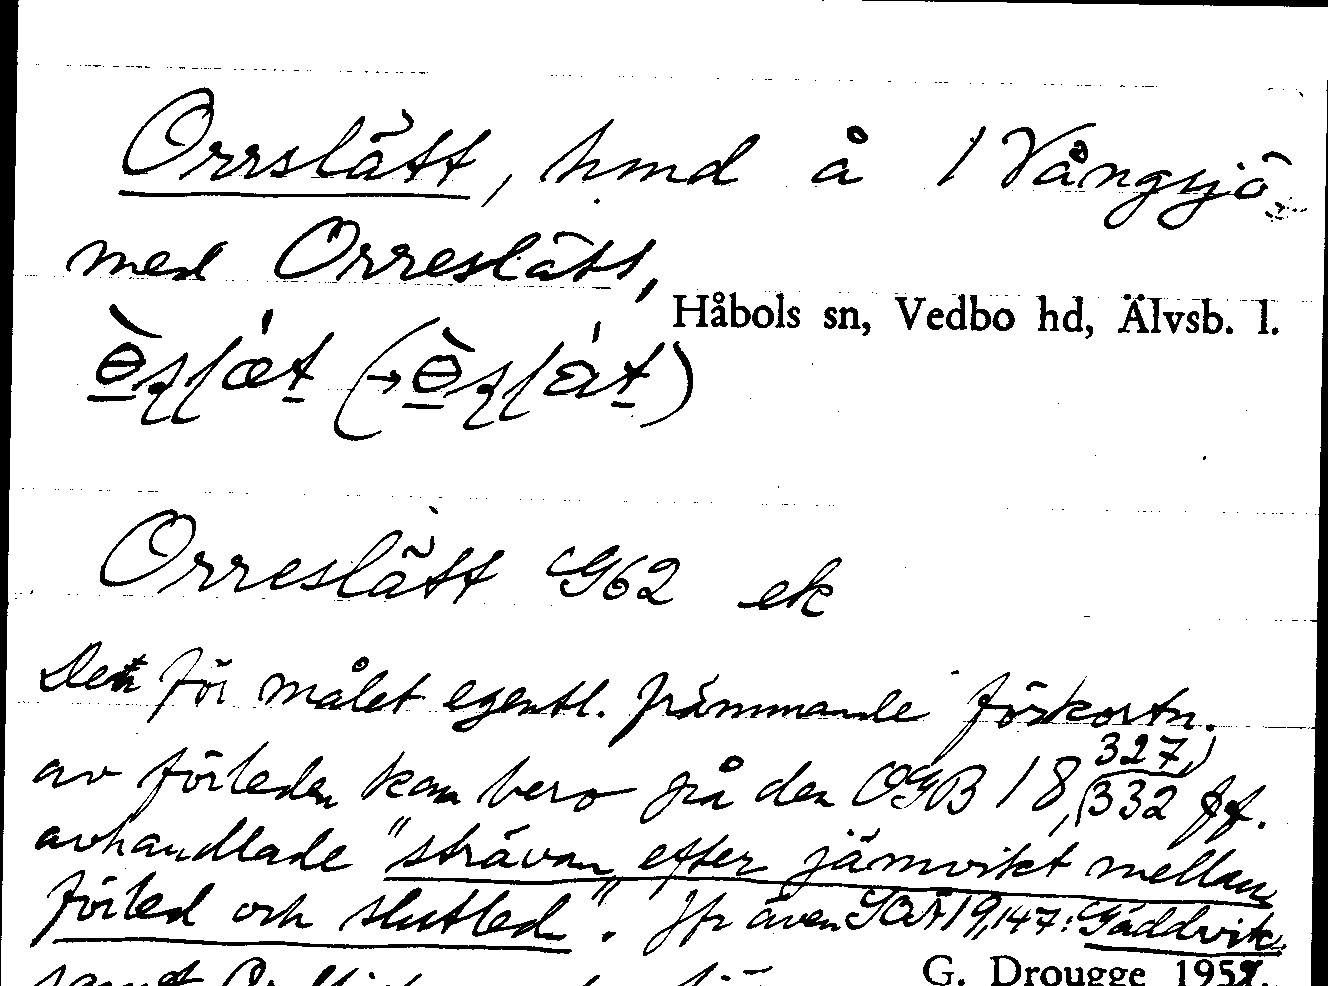 Orrslätt, hmd å 1 Vångsjö
med Orreslätt,
Håbols sn, Vedbo hd, Älvsb. l.
Orreslätt G62 ek
Den för målet egentl. främmande förkortn.
av förleden kan bero på den OGB 18, (327,) 332 ff.
avhandlade "strävan efter jämvikt mellan
förled och slutled". Jfr även SOÄ 19,147: Gäddvik
samt
G. Drougge 1959.